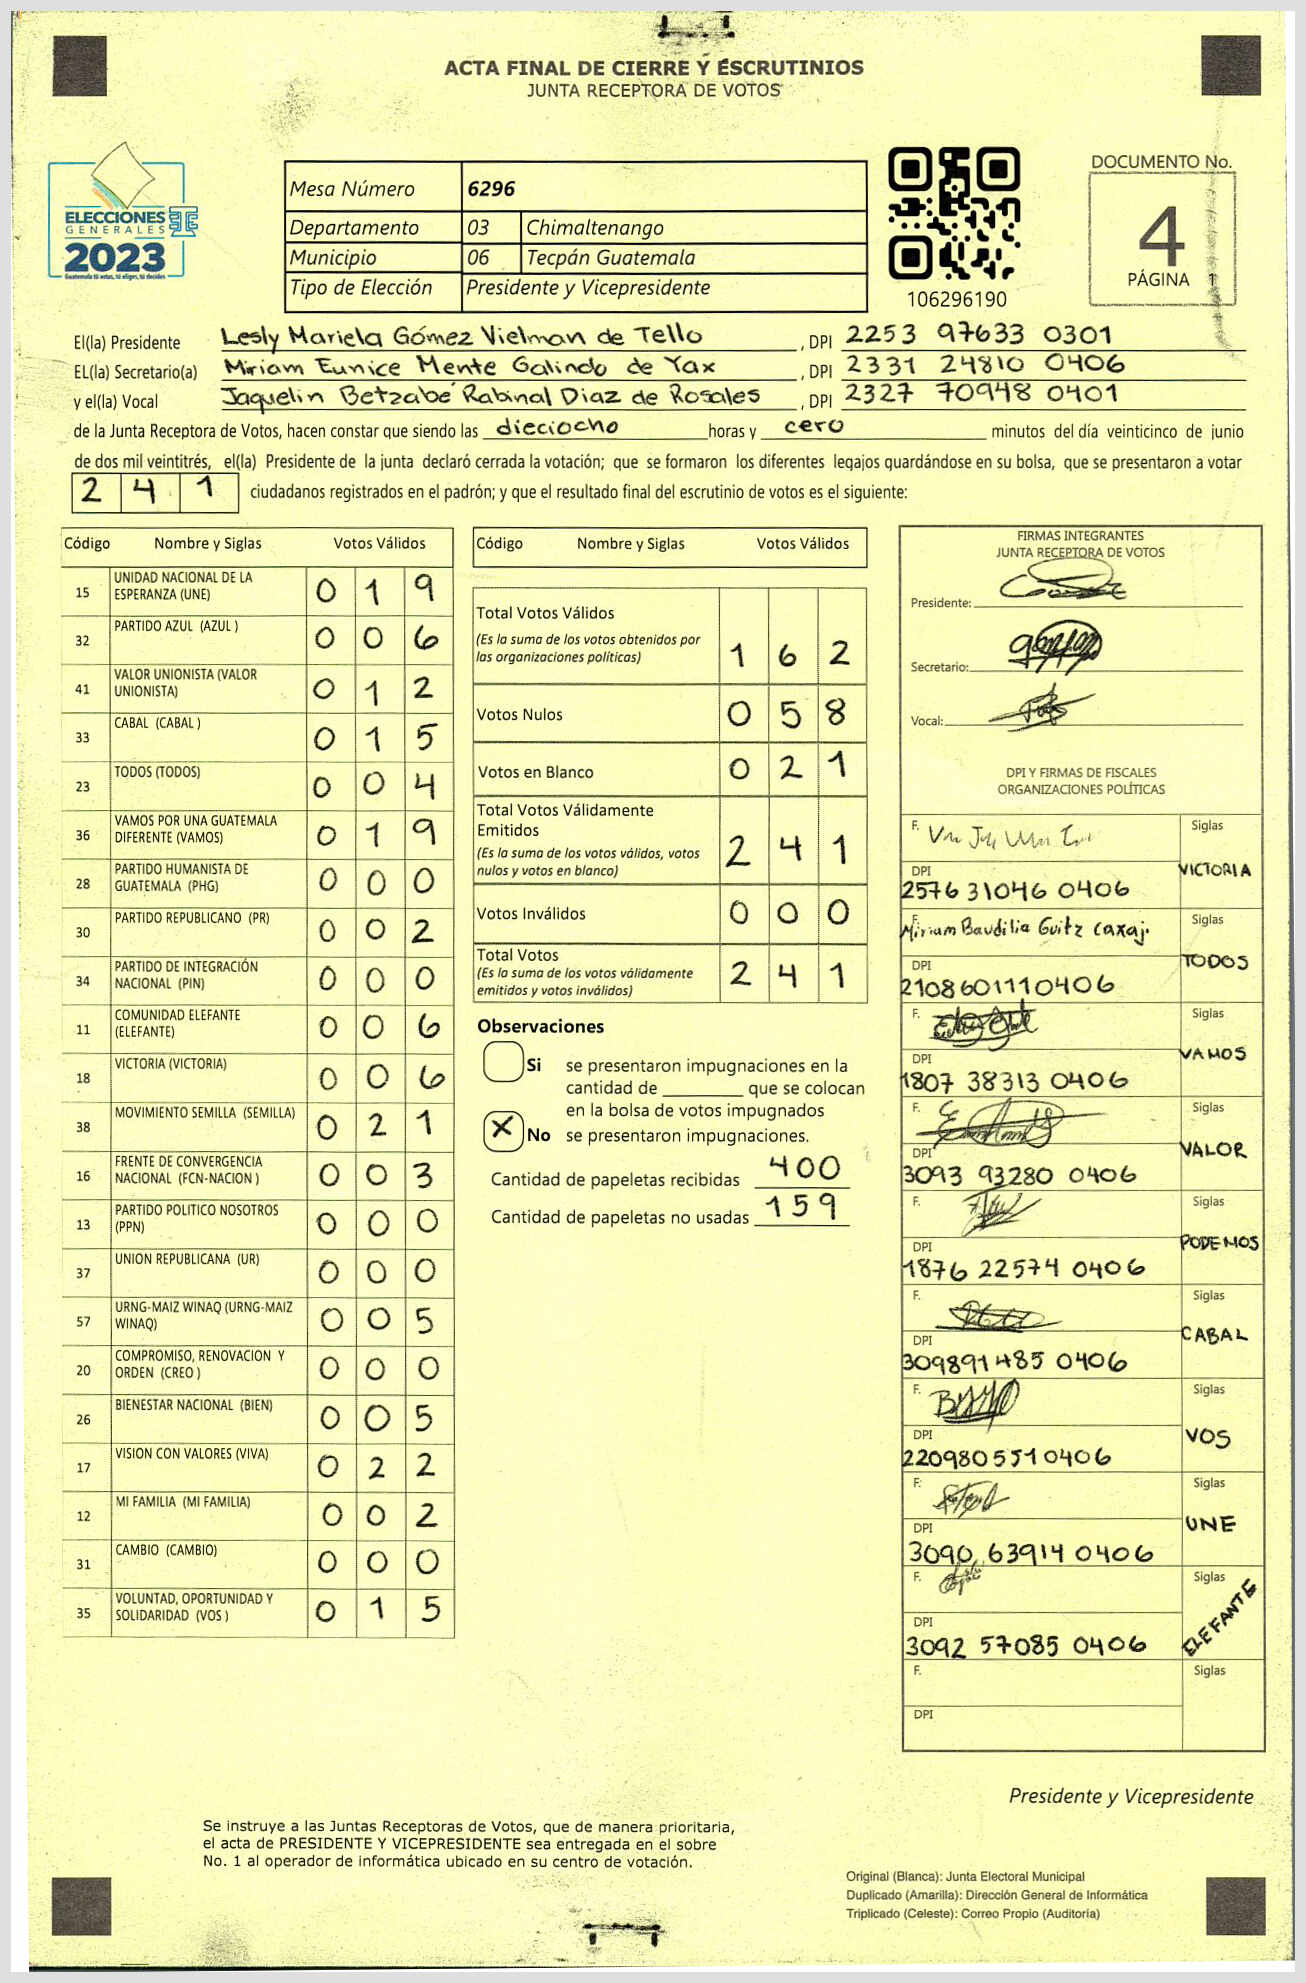 ACTA FINAL DE CIERRE Y ESCRUTINIOS
JUNTA RECEPTORA DE VOTOS
ELECCIONES
GENERALES
2023
Guatemala tú votas, tú eliges, tú decides
Mesa Número 6296
Departamento 03 Chimaltenango
Municipio 06 Tecpán Guatemala
Tipo de Elección Presidente y Vicepresidente
106296190
DOCUMENTO No.
4
PÁGINA 1
El(la) Presidente Lesly Mariela Gómez Vielman de Tello , DPI 2253 97633 0301
EL(la) Secretario(a) Miriam Eunice Mente Galindo de Yax , DPI 2331 24810 0406
y el(la) Vocal Jaquelin Betzabé Rabinal Diaz de Rosales , DPI 2327 70948 0401
de la Junta Receptora de Votos, hacen constar que siendo las dieciocho horas y cero minutos del día veinticinco de junio
de dos mil veintitrés, el(la) Presidente de la junta declaró cerrada la votación; que se formaron los diferentes legajos guardándose en su bolsa, que se presentaron a votar
2 4 1 ciudadanos registrados en el padrón; y que el resultado final del escrutinio de votos es el siguiente:
Código Nombre y Siglas Votos Válidos
15 UNIDAD NACIONAL DE LA ESPERANZA (UNE) 0 1 9
32 PARTIDO AZUL (AZUL ) 0 0 6
41 VALOR UNIONISTA (VALOR UNIONISTA) 0 1 2
33 CABAL (CABAL ) 0 1 5
23 TODOS (TODOS) 0 0 4
36 VAMOS POR UNA GUATEMALA DIFERENTE (VAMOS) 0 1 9
28 PARTIDO HUMANISTA DE GUATEMALA (PHG) 0 0 0
30 PARTIDO REPUBLICANO (PR) 0 0 2
34 PARTIDO DE INTEGRACIÓN NACIONAL (PIN) 0 0 0
11 COMUNIDAD ELEFANTE (ELEFANTE) 0 0 6
18 VICTORIA (VICTORIA) 0 0 6
38 MOVIMIENTO SEMILLA (SEMILLA) 0 2 1
16 FRENTE DE CONVERGENCIA NACIONAL (FCN-NACION ) 0 0 3
13 PARTIDO POLITICO NOSOTROS (PPN) 0 0 0
37 UNION REPUBLICANA (UR) 0 0 0
57 URNG-MAIZ WINAQ (URNG-MAIZ WINAQ) 0 0 5
20 COMPROMISO, RENOVACION Y ORDEN (CREO ) 0 0 0
26 BIENESTAR NACIONAL (BIEN) 0 0 5
17 VISION CON VALORES (VIVA) 0 2 2
12 MI FAMILIA (MI FAMILIA) 0 0 2
31 CAMBIO (CAMBIO) 0 0 0
35 VOLUNTAD, OPORTUNIDAD Y SOLIDARIDAD (VOS ) 0 1 5
Código Nombre y Siglas Votos Válidos
Total Votos Válidos
(Es la suma de los votos obtenidos por
las organizaciones políticas) 1 6 2
Votos Nulos 0 5 8
Votos en Blanco 0 2 1
Total Votos Válidamente
Emitidos
(Es la suma de los votos válidos, votos
nulos y votos en blanco) 2 4 1
Votos Inválidos 0 0 0
Total Votos
(Es la suma de los votos válidamente
emitidos y votos inválidos) 2 4 1
Observaciones
Si se presentaron impugnaciones en la
cantidad de ________ que se colocan
en la bolsa de votos impugnados
X No se presentaron impugnaciones.
Cantidad de papeletas recibidas 400
Cantidad de papeletas no usadas 159
FIRMAS INTEGRANTES
JUNTA RECEPTORA DE VOTOS
Presidente:
Secretario:
Vocal:
DPI Y FIRMAS DE FISCALES
ORGANIZACIONES POLÍTICAS
F. Siglas
VICTORIA
DPI
2576 31046 0406
F. Miriam Baudilia Guitz Caxaj. Siglas
TODOS
DPI
2108601110406
F. Siglas
VAMOS
DPI
1807 38313 0406
F. Siglas
VALOR
DPI
3093 93280 0406
F. Siglas
PODEMOS
DPI
1876 22574 0406
F. Siglas
CABAL
DPI
309891485 0406
F. Siglas
VOS
DPI
220980551 0406
F. Siglas
UNE
DPI
3090 63914 0406
F. Siglas
ELEFANTE
DPI
3092 57085 0406
F. Siglas
DPI
Presidente y Vicepresidente
Se instruye a las Juntas Receptoras de Votos, que de manera prioritaria,
el acta de PRESIDENTE Y VICEPRESIDENTE sea entregada en el sobre
No. 1 al operador de informática ubicado en su centro de votación.
Original (Blanca): Junta Electoral Municipal
Duplicado (Amarilla): Dirección General de Informática
Triplicado (Celeste): Correo Propio (Auditoría)